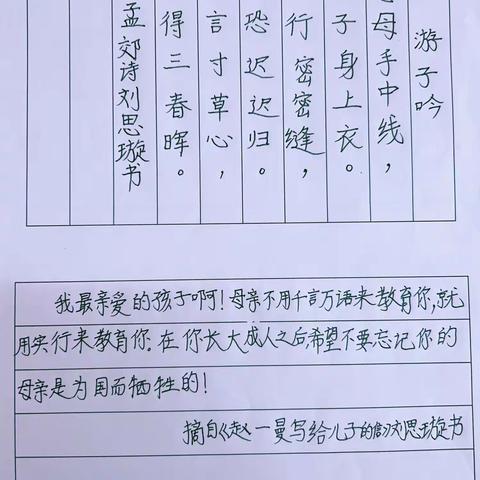 游子吟
母手中线，
子身上衣。
行密密缝，
恐迟迟归。
言寸草心，
得三春晖。
孟郊诗刘思璇书
我最亲爱的孩子啊！母亲不用千言万语来教育你，就
用实行来教育你.在你长大成人之后，希望不要忘记你的
母亲是为国而牺牲的！
摘自《赵一曼写给儿子的信》刘思璇书